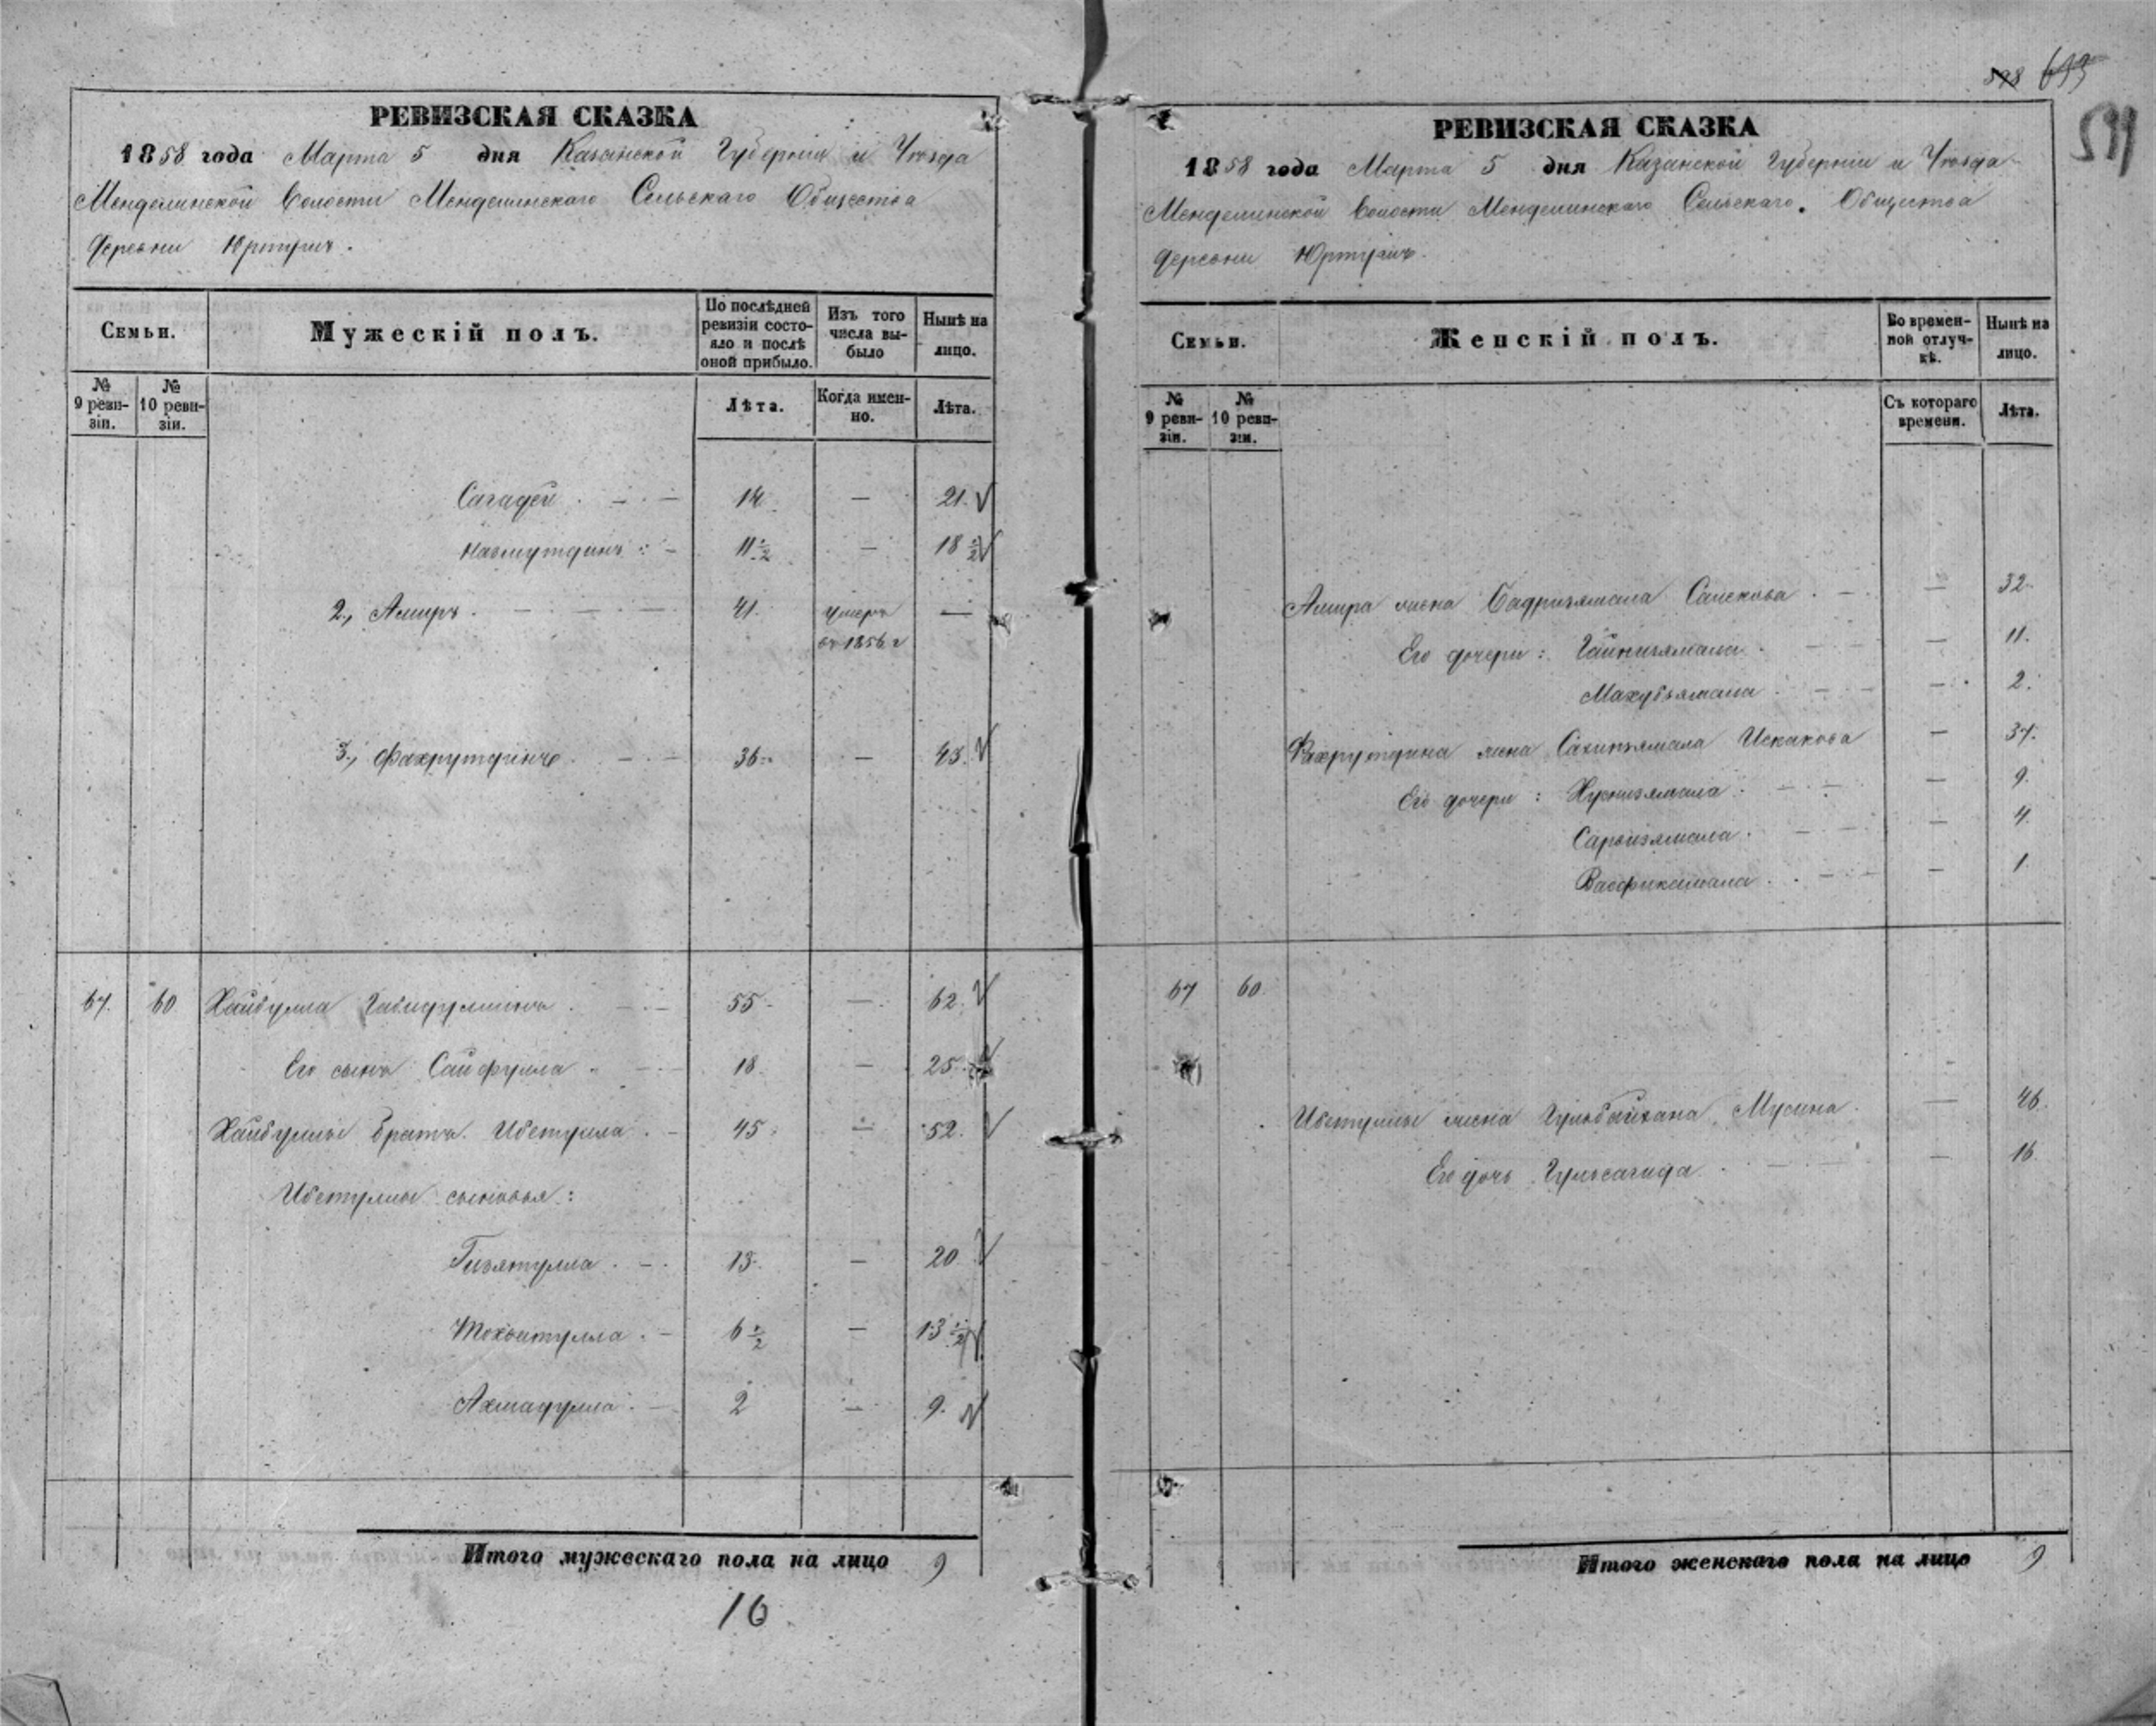 РЕВИЗСКАЯ СКАЗКА
1858 года Марта 5 дня Казанской Губерніи и Уѣзда
Менделинской Волости Менделинскаго Сельскаго Общества
деревни Юртушъ.
Семьи.
Мужескій полъ.
По послѣдней ревизіи состояло и послѣ оной прибыло.
Изъ того числа выбыло
Нынѣ на лицо.
№ 9 ревизіи.
№ 10 ревизіи.
Лѣта.
Когда именно.
Лѣта.
Сагадей . — . — 14. — 21.
11 ½ — 18 ½
2., Амиръ . — . — 41. умеръ —
въ 1856 г
3., Фахрутдинъ . — . — 36. — 43.
67. 60 Хайбулла 55 — 62.
Его сынъ Сайфулла . — 18. — 25.
Хайбуллы братъ Ибетулла . — 45. — 52.
Ибетуллы сыновья:
Гизятулла . — . 13. — 20
6 ½ — 13 ½
Ахмадулла . — 2 — 9.
Итого мужескаго пола на лицо 9
16
598
591
РЕВИЗСКАЯ СКАЗКА
1858 года Марта 5 дня Казанской Губерніи и Уѣзда
Менделинской Волости Менделинскаго Сельскаго Общества
деревни Юртушъ.
Семьи.
Женскій полъ.
Во временной отлучкѣ.
Нынѣ на лицо.
№ 9 ревизіи.
№ 10 ревизіи.
Съ котораго времени.
Лѣта.
Амира жена Бадризямала . — — 32.
Его дочери : Гайнизямала . — . — — 11.
Махубзямала . — . — — 2.
Фахрутдина жена Искакова — 37.
Его дочери : — 9.
Сарбизямала . — . — — 4.
— 1.
67 60.
Ибетуллы жена Гульбайхана Мусина . — 46.
Его дочь Гульсагида . — — 16
Итого женскаго пола на лицо 9